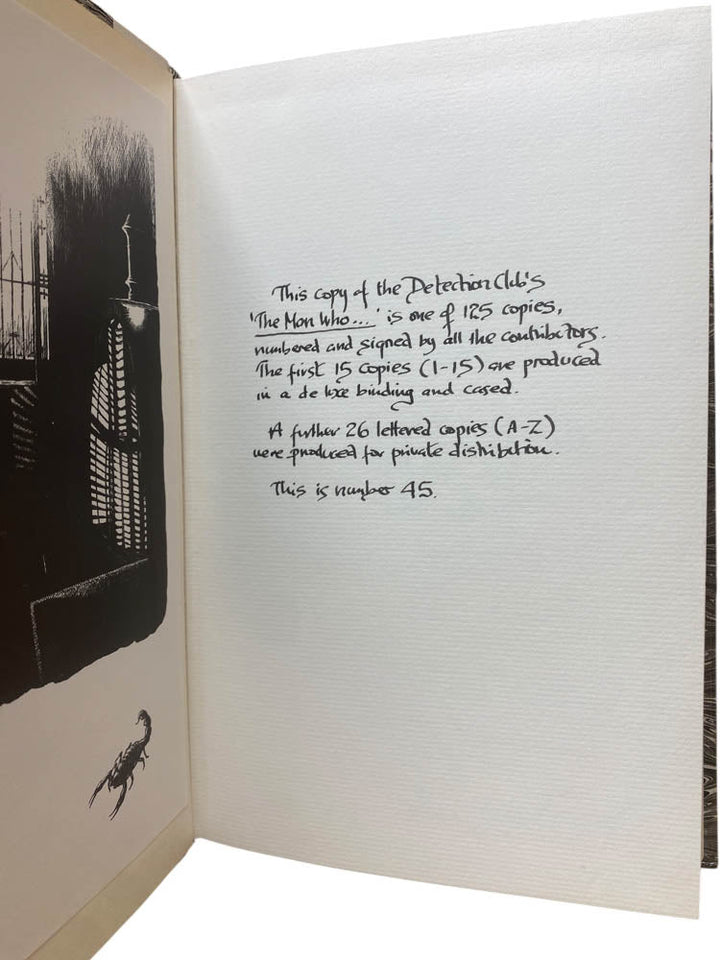 This copy of the Detection Club's
'The Man Who...' is one of 125 copies,
numbered and signed by all the contributors.
The first 15 copies (1-15) are produced
in a de luxe binding and cased.
A further 26 lettered copies (A-Z)
were produced for private distribution.
This is number 45.